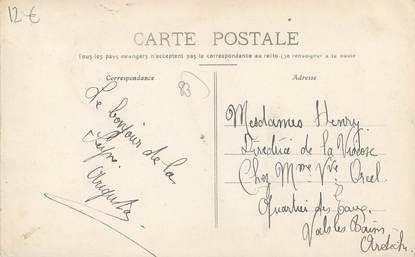 12 €
CARTE POSTALE
Tous les pays étrangers n'acceptent pas la correspondance au recto (Se renseigner à la poste
Correspondance
Adresse
83
Le bonjour de la
Seyne
Augusta
Mesdames Henry
Directrice de la
Chez Mme Vve
Quartier des
Vals les Bains
Ardèche